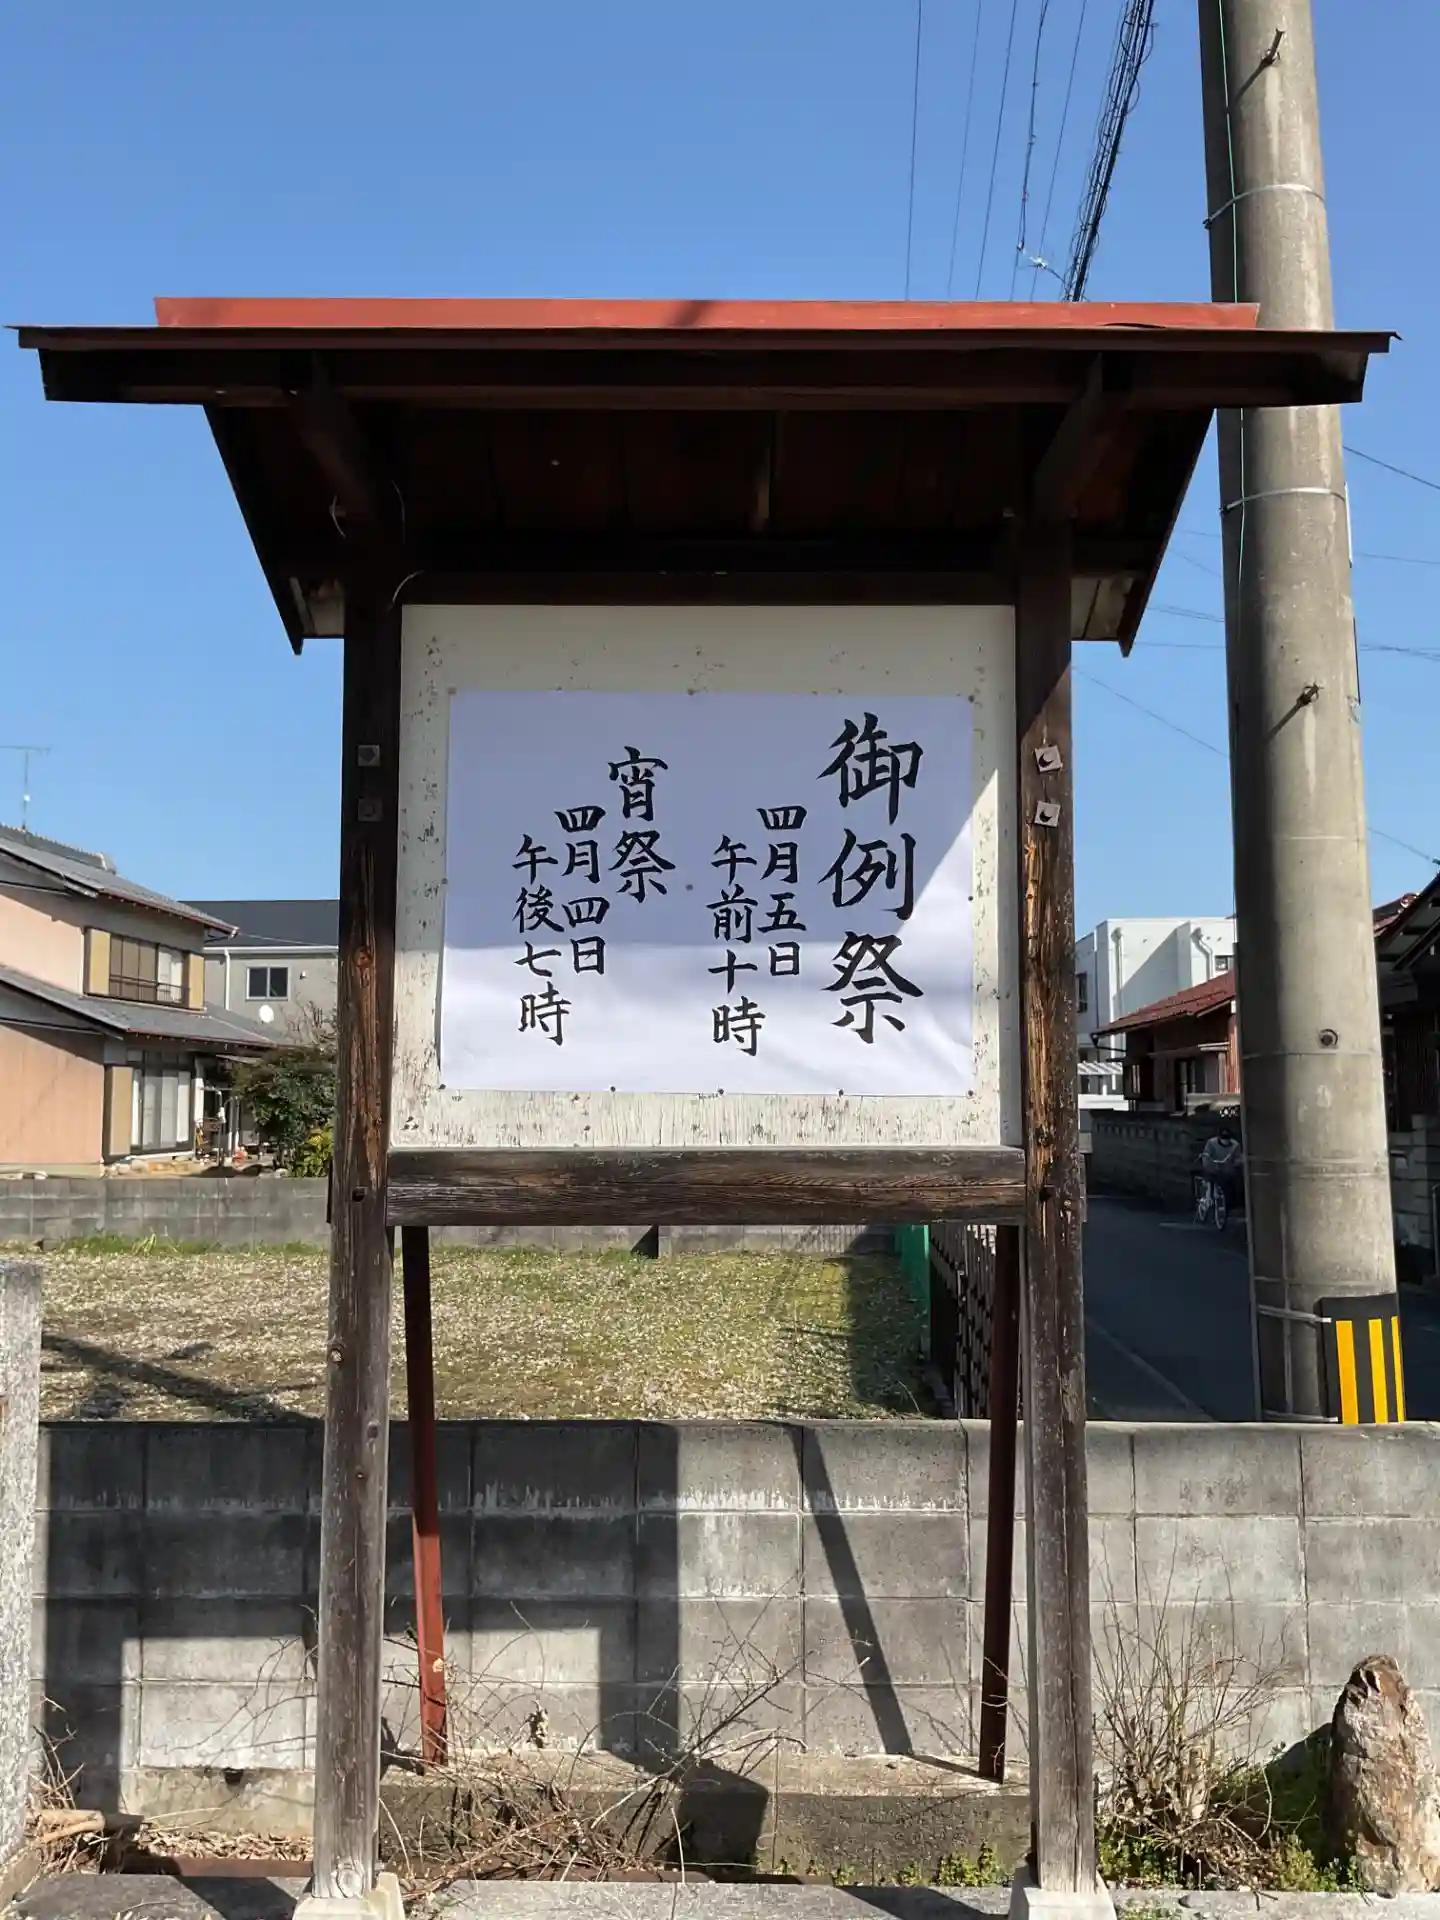 御例祭
四月五日
午前十時
宵祭
四月四日
午後七時